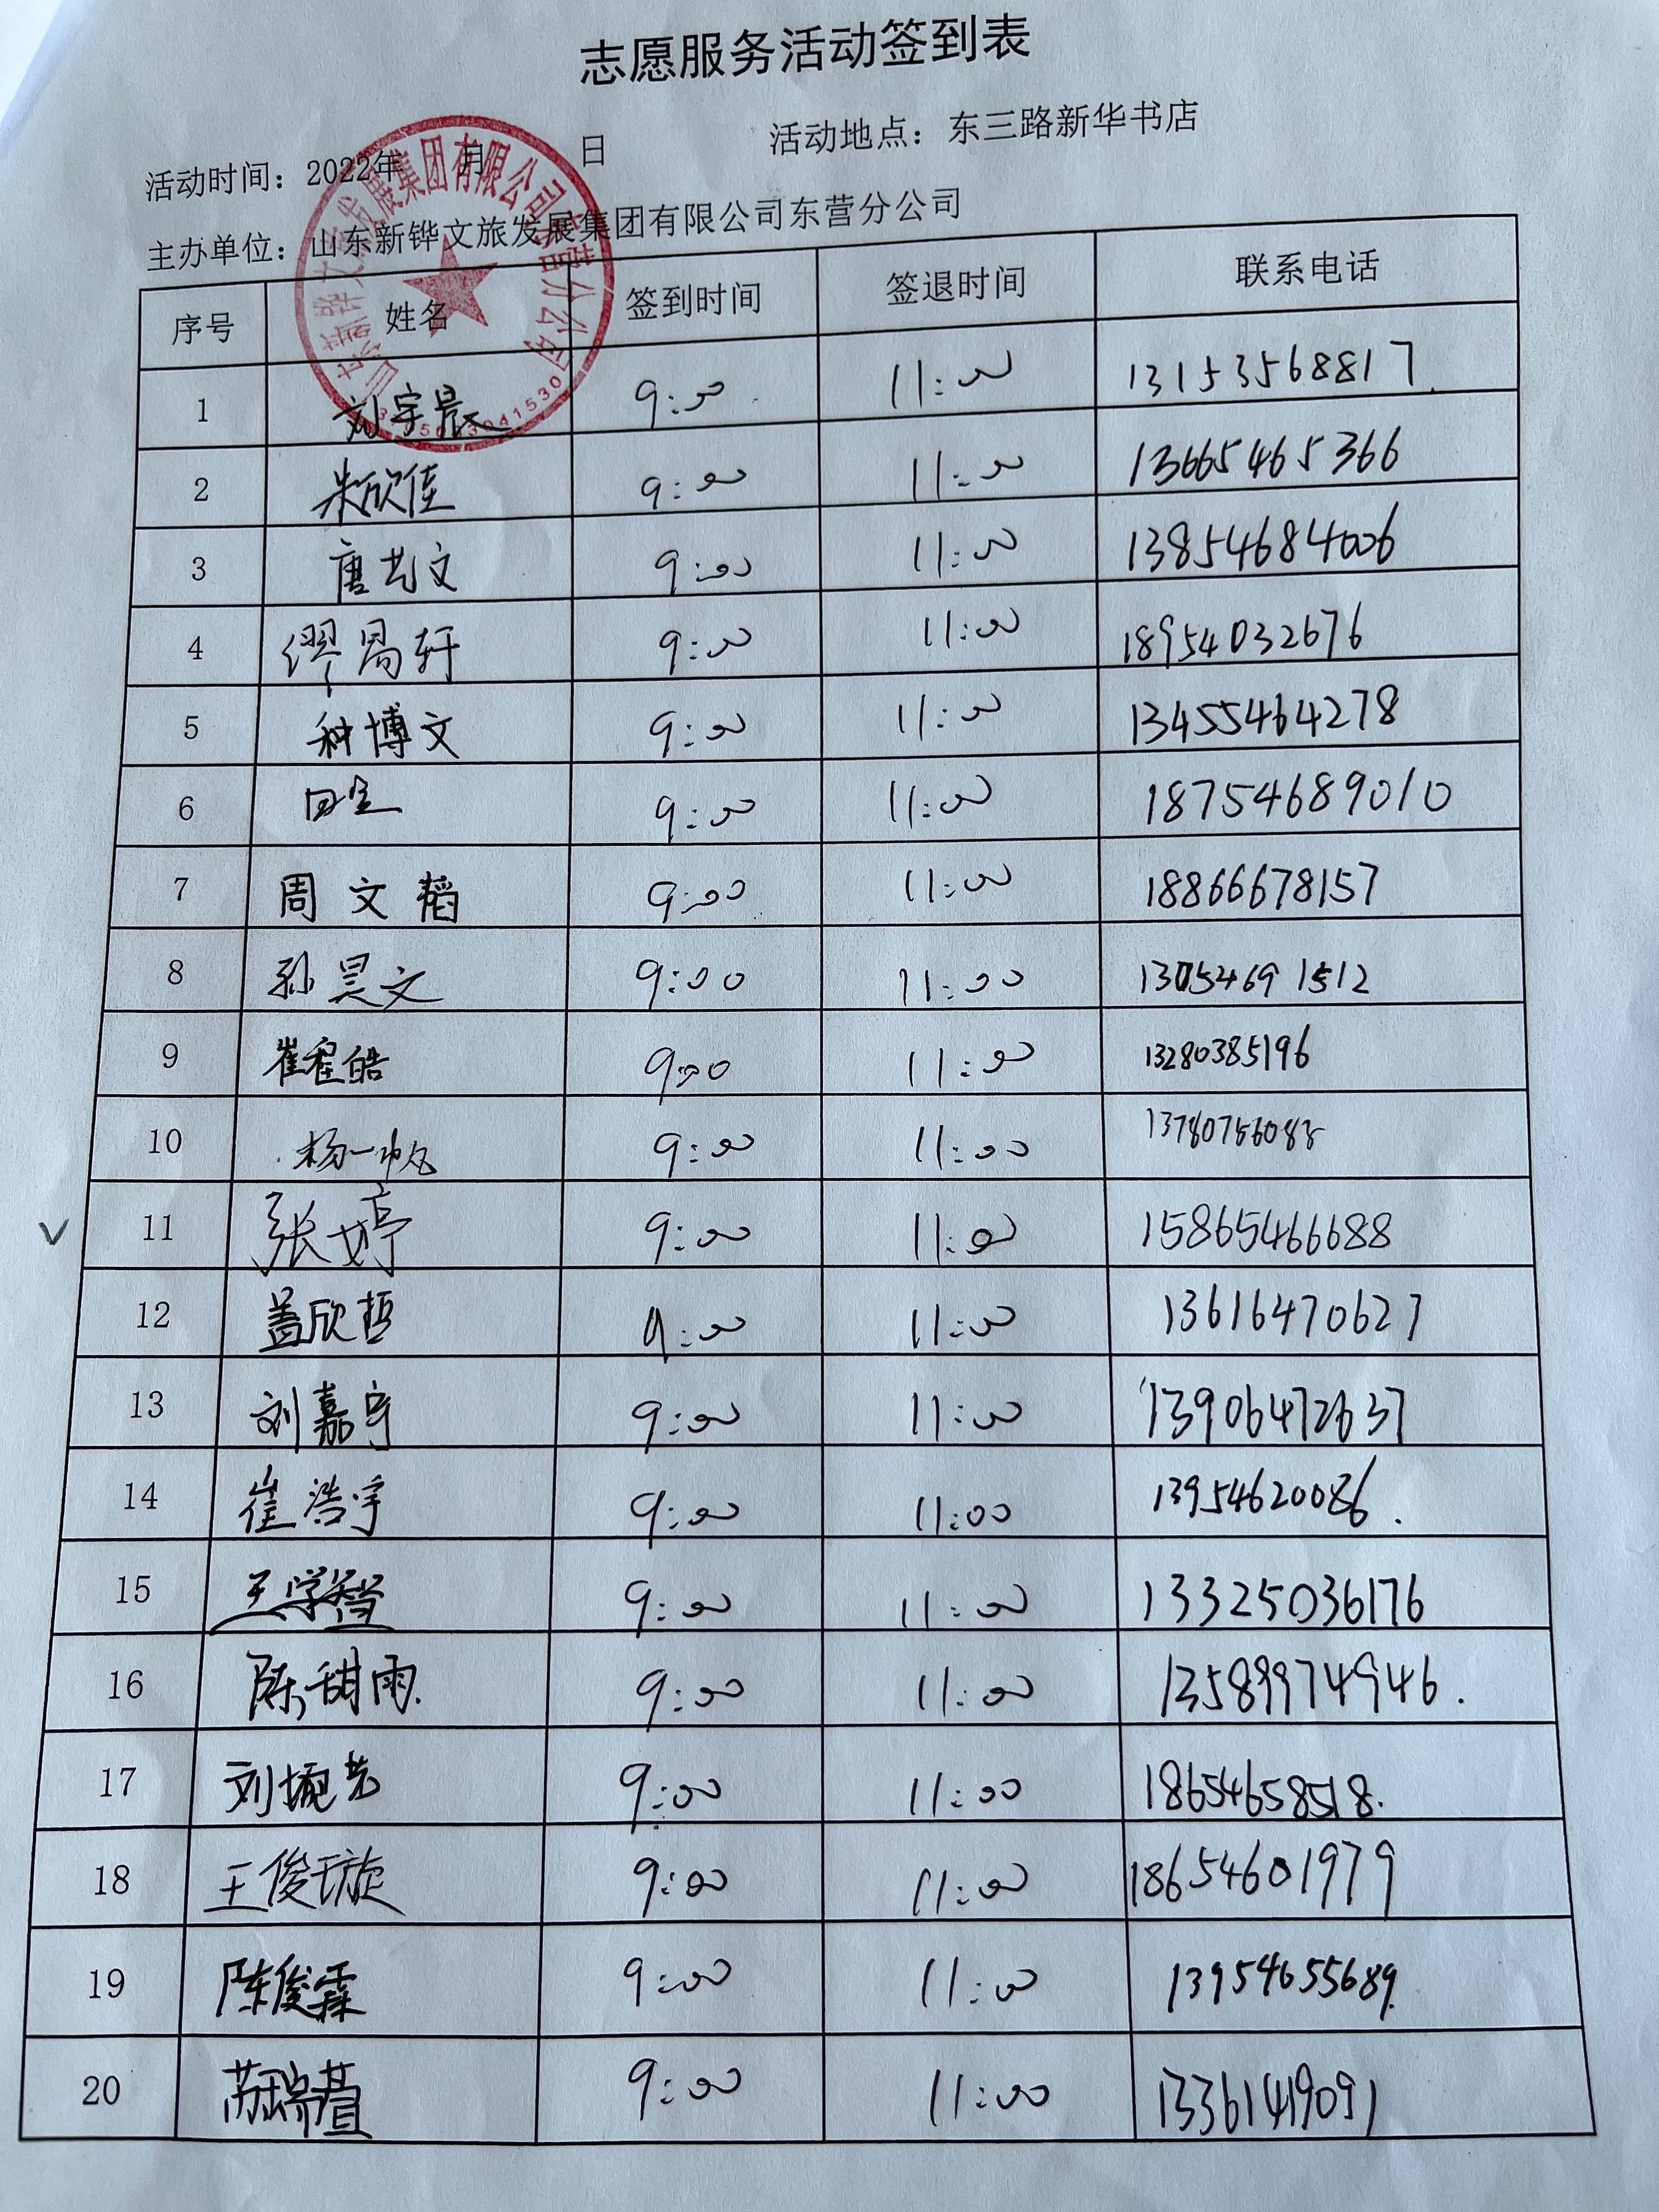 志愿服务活动签到表
活动时间：2022年 月 日 活动地点：东三路新华书店
主办单位：山东新铧文旅发展集团有限公司东营分公司
序号 姓名 签到时间 签退时间 联系电话
1 刘宇晨 9:00 11:00 13153568817
2 朱欣佳 9:00 11:00 13665465366
3 唐艺文 9:00 11:00 13854684006
4 缪昺轩 9:00 11:00 18954032676
5 种博文 9:00 11:00 13455464278
6 9:00 11:00 18754689010
7 周文韬 9:00 11:00 18866678157
8 孙昊文 9:00 11:00 13054691512
9 崔程皓 9:00 11:00 13280385196
10 杨一帆 9:00 11:00 13780756088
11 张婷 9:00 11:00 15865466688
12 盖欣哲 9:00 11:00 13616470627
13 刘嘉宇 9:00 11:00 13906472637
14 崔浩宇 9:00 11:00 13954620086.
15 王学智 9:00 11:00 13325036176
16 陈甜雨. 9:00 11:00 13589974946.
17 刘婉艺 9:00 11:00 18654658518.
18 王俊璇 9:00 11:00 18654601979
19 陈俊霖 9:00 11:00 13954655689.
20 9:00 11:00 13361419091